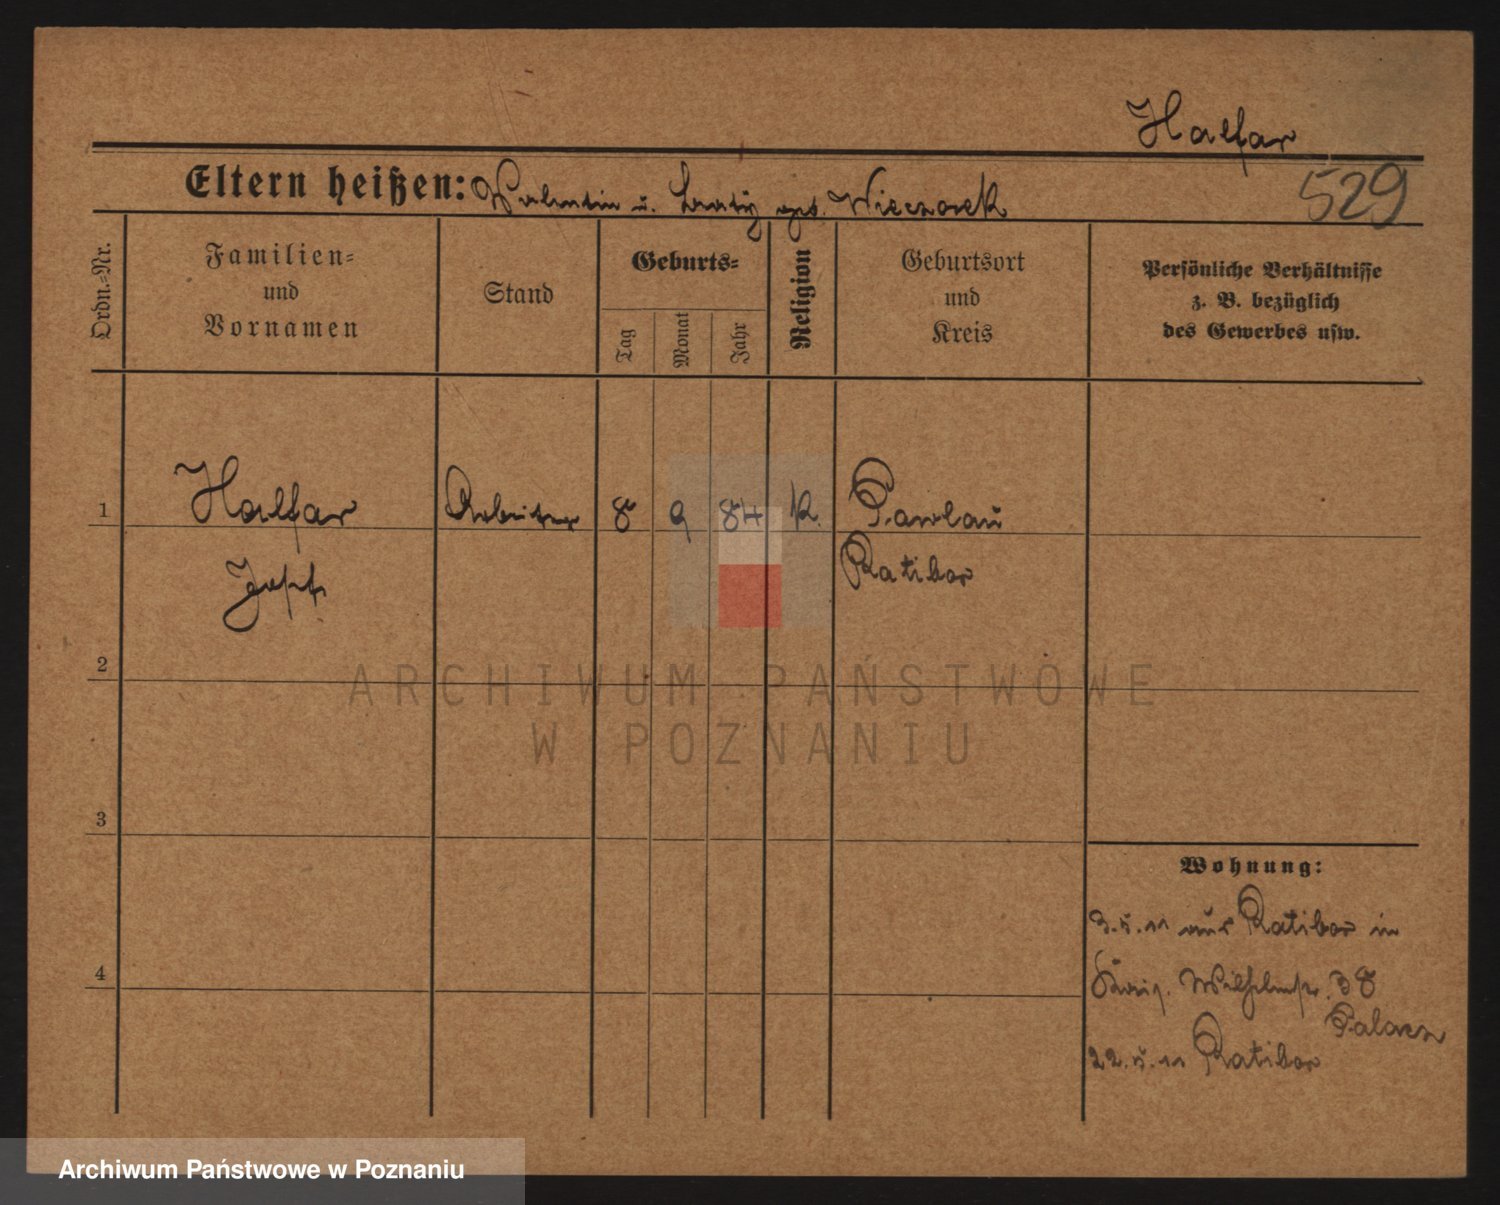 Halfar
Eltern heißen: Valentin u. geb. Wieczorek
529
Ordn.=Nr.
Familien=
und
Vornamen
Stand
Geburts=
Tag
Monat
Jahr
Religion
Geburtsort
und
Kreis
Persönliche Verhältnisse
z. B. bezüglich
des Gewerbes usw.
1 Halfar Arbeiter 8 9 84 K. Pawlau
Josef Ratibor
2
ARCHIWUM PAŃSTWOWE
W POZNANIU
3
Wohnung:
3.5.11 aus Ratibor in
Wilhelmstr. 38
4
22.5.11 Ratibor
Archiwum Państwowe w Poznaniu